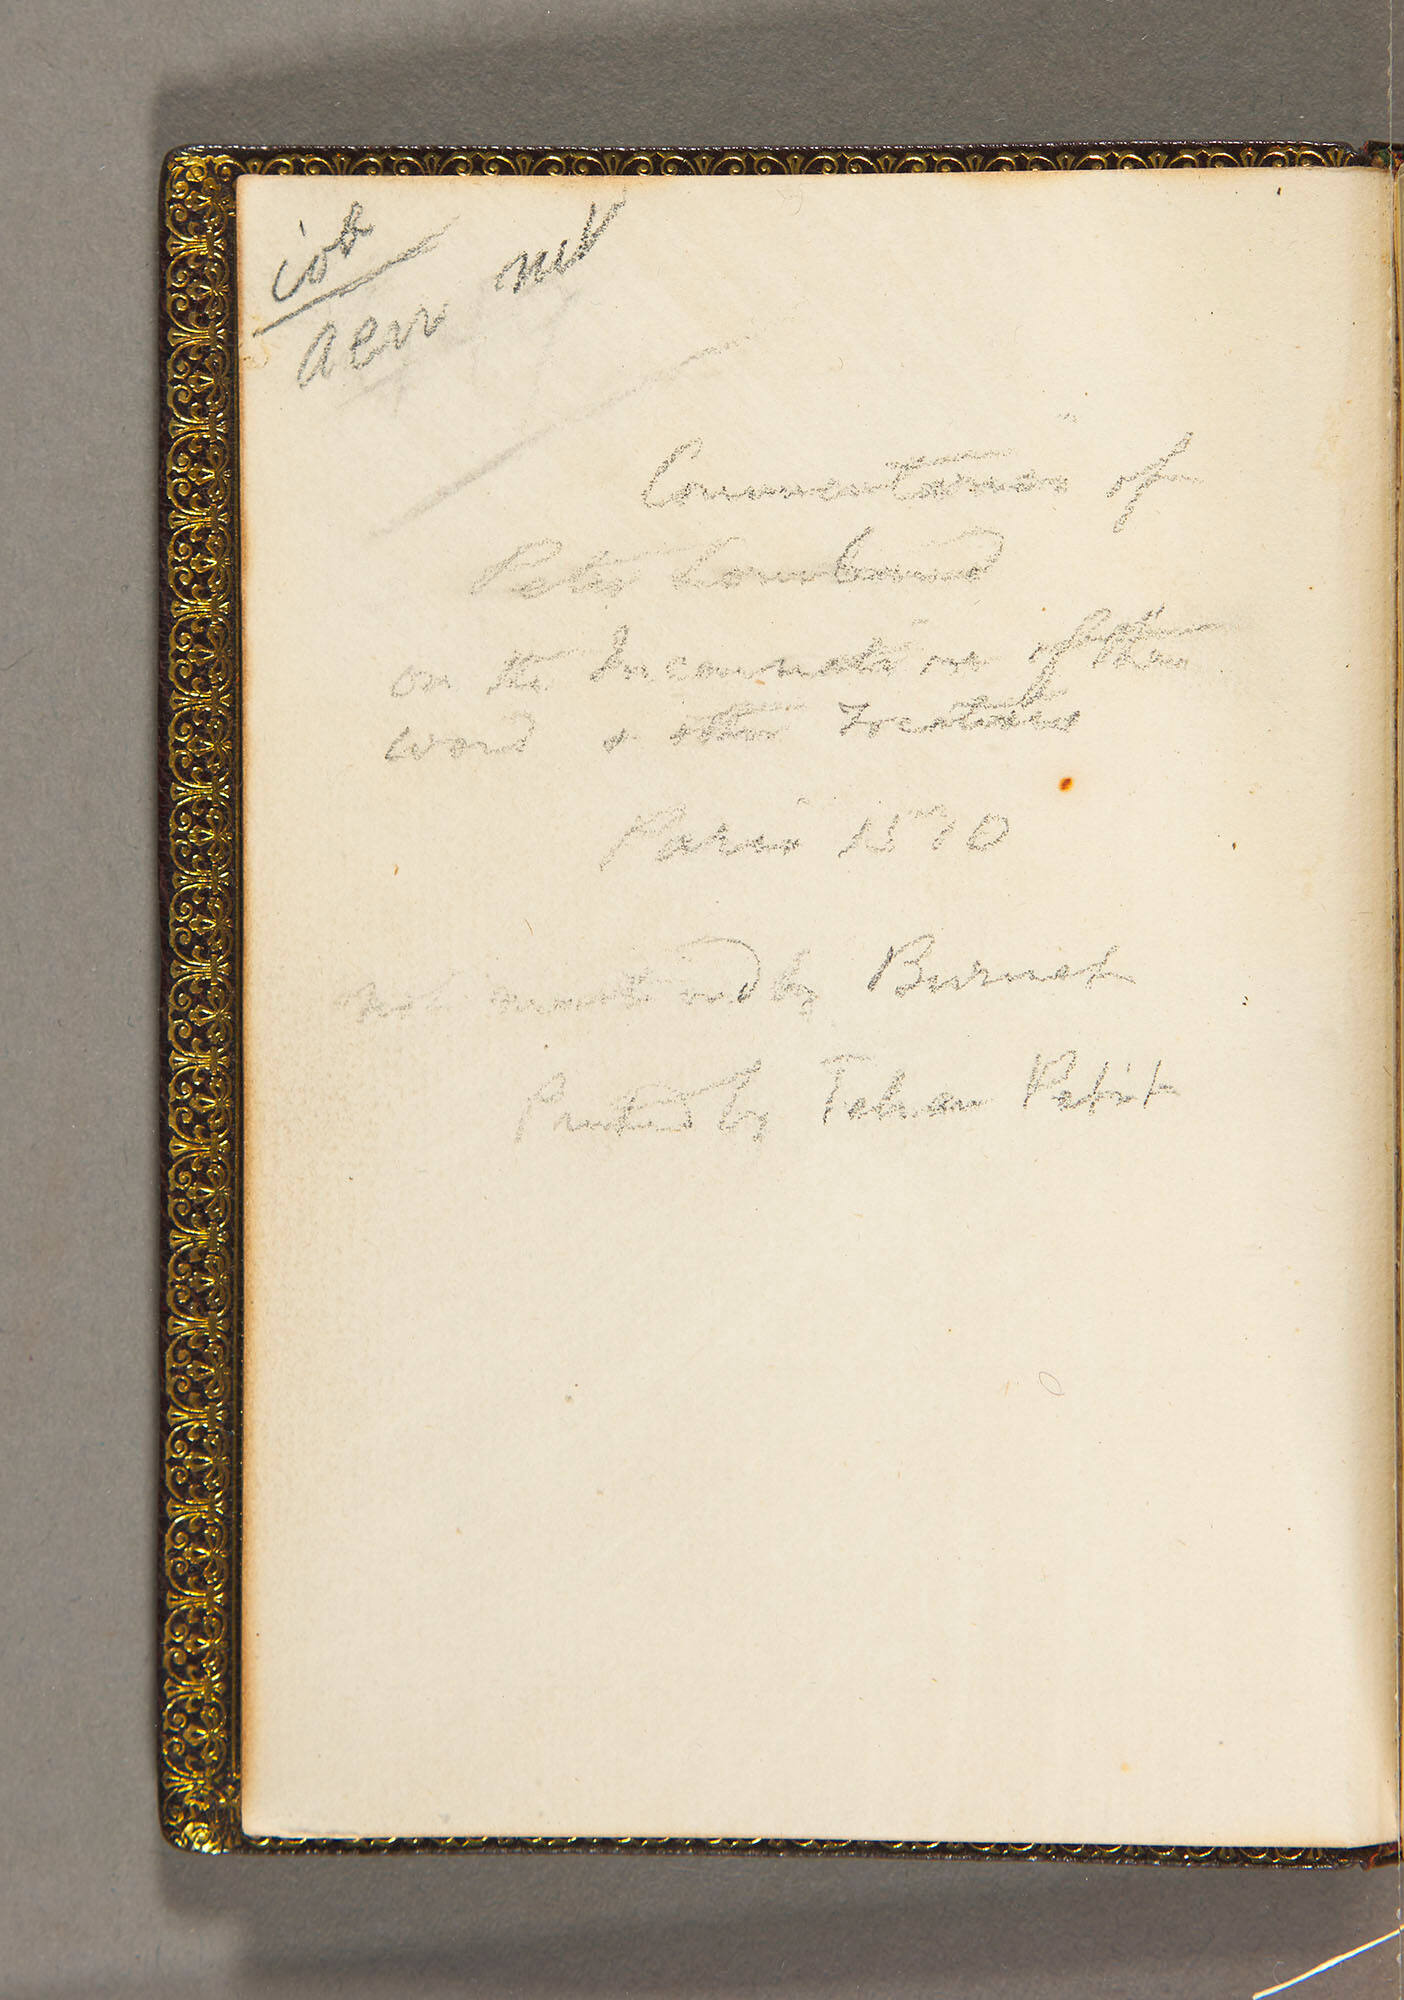 net
Commentaries of
Peter Lombard
on the Incarnation of the
word & other Treatises
Paris 15
not mentioned by Brunet
Printed by Jehan Petit